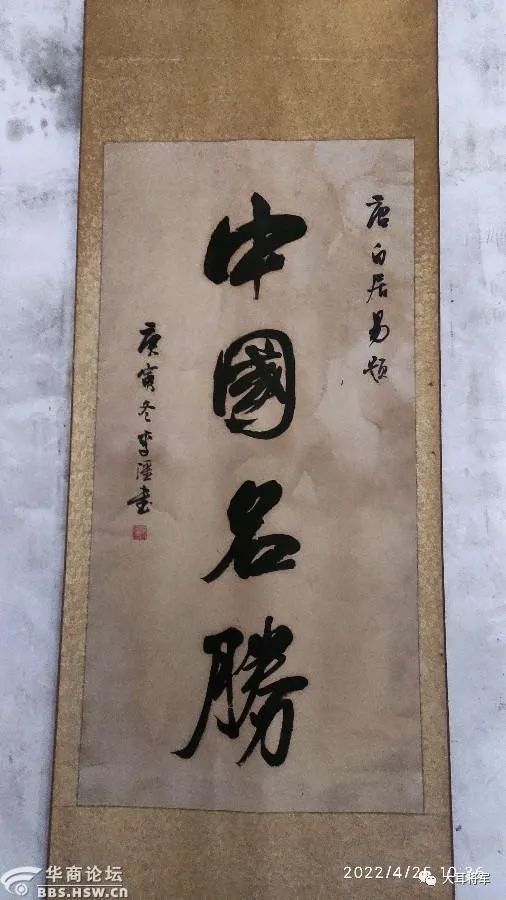 唐白居易题
中國名勝
庚寅冬李滙书
华商论坛
BBS.HSW.CN
2022/4/25 10:36
大耳将军